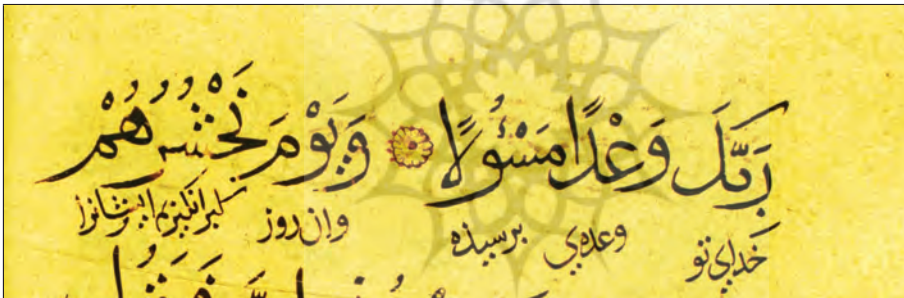 رَبِّكَ وَعْدًا مَسْئُولًا وَيَوْمَ نَحْشُرُهُمْ
خدای تو وعده‌ی برسیده وان روز کبرانکیزیم ایشانرا